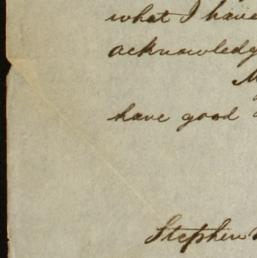 what I have
acknowledg
have good
Stephen